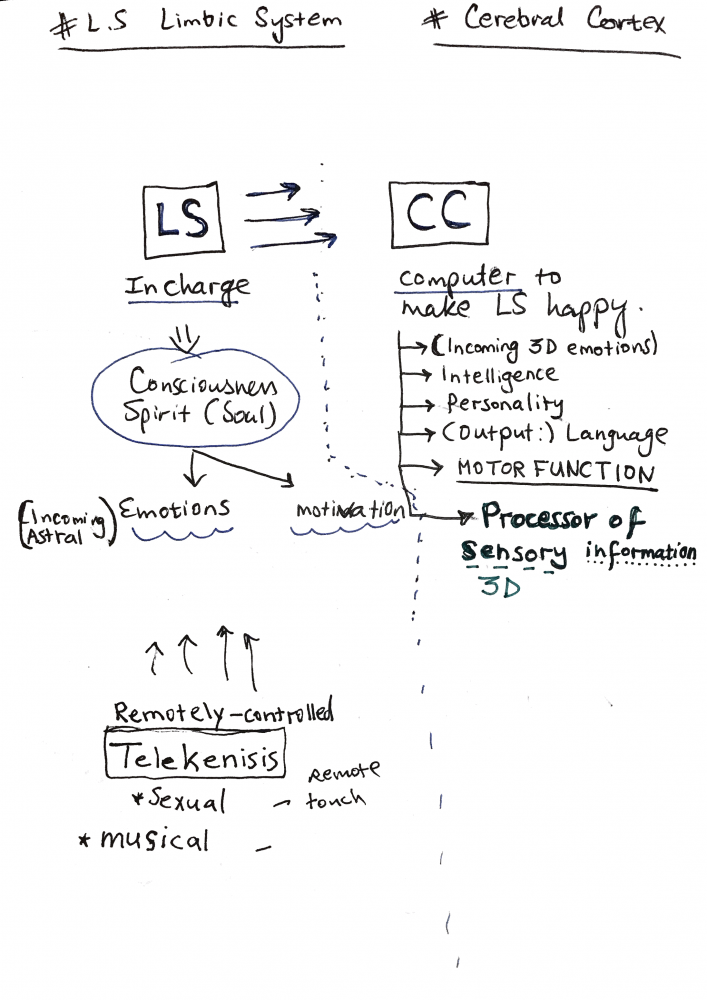 # L.S Limbic System
# Cerebral Cortex
LS
CC
In charge
computer to
make LS happy.
Consciousness
Spirit (Soul)
(Incoming 3D emotions)
Intelligence
Personality
(Output:) Language
MOTOR FUNCTION
(Incoming
Astral)
Emotions
motivation
Processor of
sensory information
3D
Remotely-controlled
Telekenisis
*Sexual - Remote
touch
* musical -